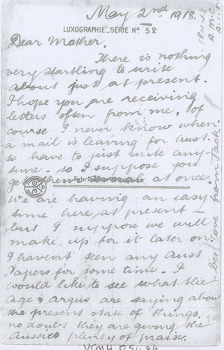 May 2nd 1918.
LUXOGRAPHIE, SERIE Nº 52
Dear Mother.
There is nothing
very startling to write
about just at present.
I hope you are receiving
letters often from me, of
course I never know when
a mail is leaving for Aust.
so have to just write any-
time. so I suppose you
get them several at once.
We are having an easy
time here, at present
but I suppose we will
make up for it later on.
I havent seen any Aust
Papers for some time. I
would like to see what the
Age & Argus are saying about
the present state of things.
no doubt they are giving the
Aussies plenty of praise.